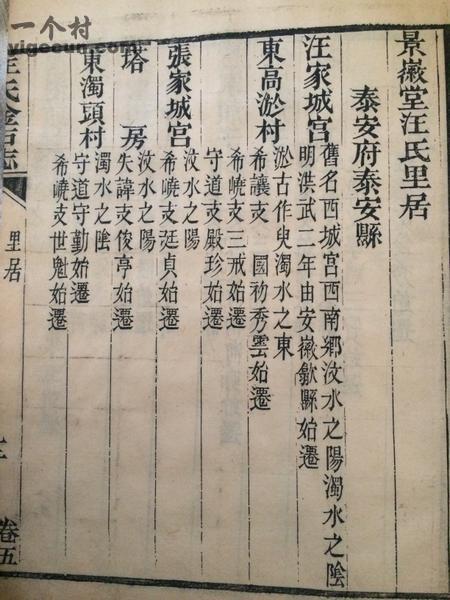 一个村
yigecun.com
景徽堂汪氏里居
泰安府泰安縣
汪家城宫
舊名西城宫西南鄉汶水之陽濁水之陰
明洪武二年由安徽歙縣始遷
東高淤村
淤古作臾濁水之東
希讓支 國初秀雲始遷
希嶢支三戒始遷
守道支嚴珍始遷
張家城宫
汶水之陽
希嶢支珽貞始遷
塔 房
汶水之陽
失諱支俊亭始遷
東濁頭村
濁水之陰
守道守勤始遷
希嶢支世魁始遷
氏金石志
里居
卷五